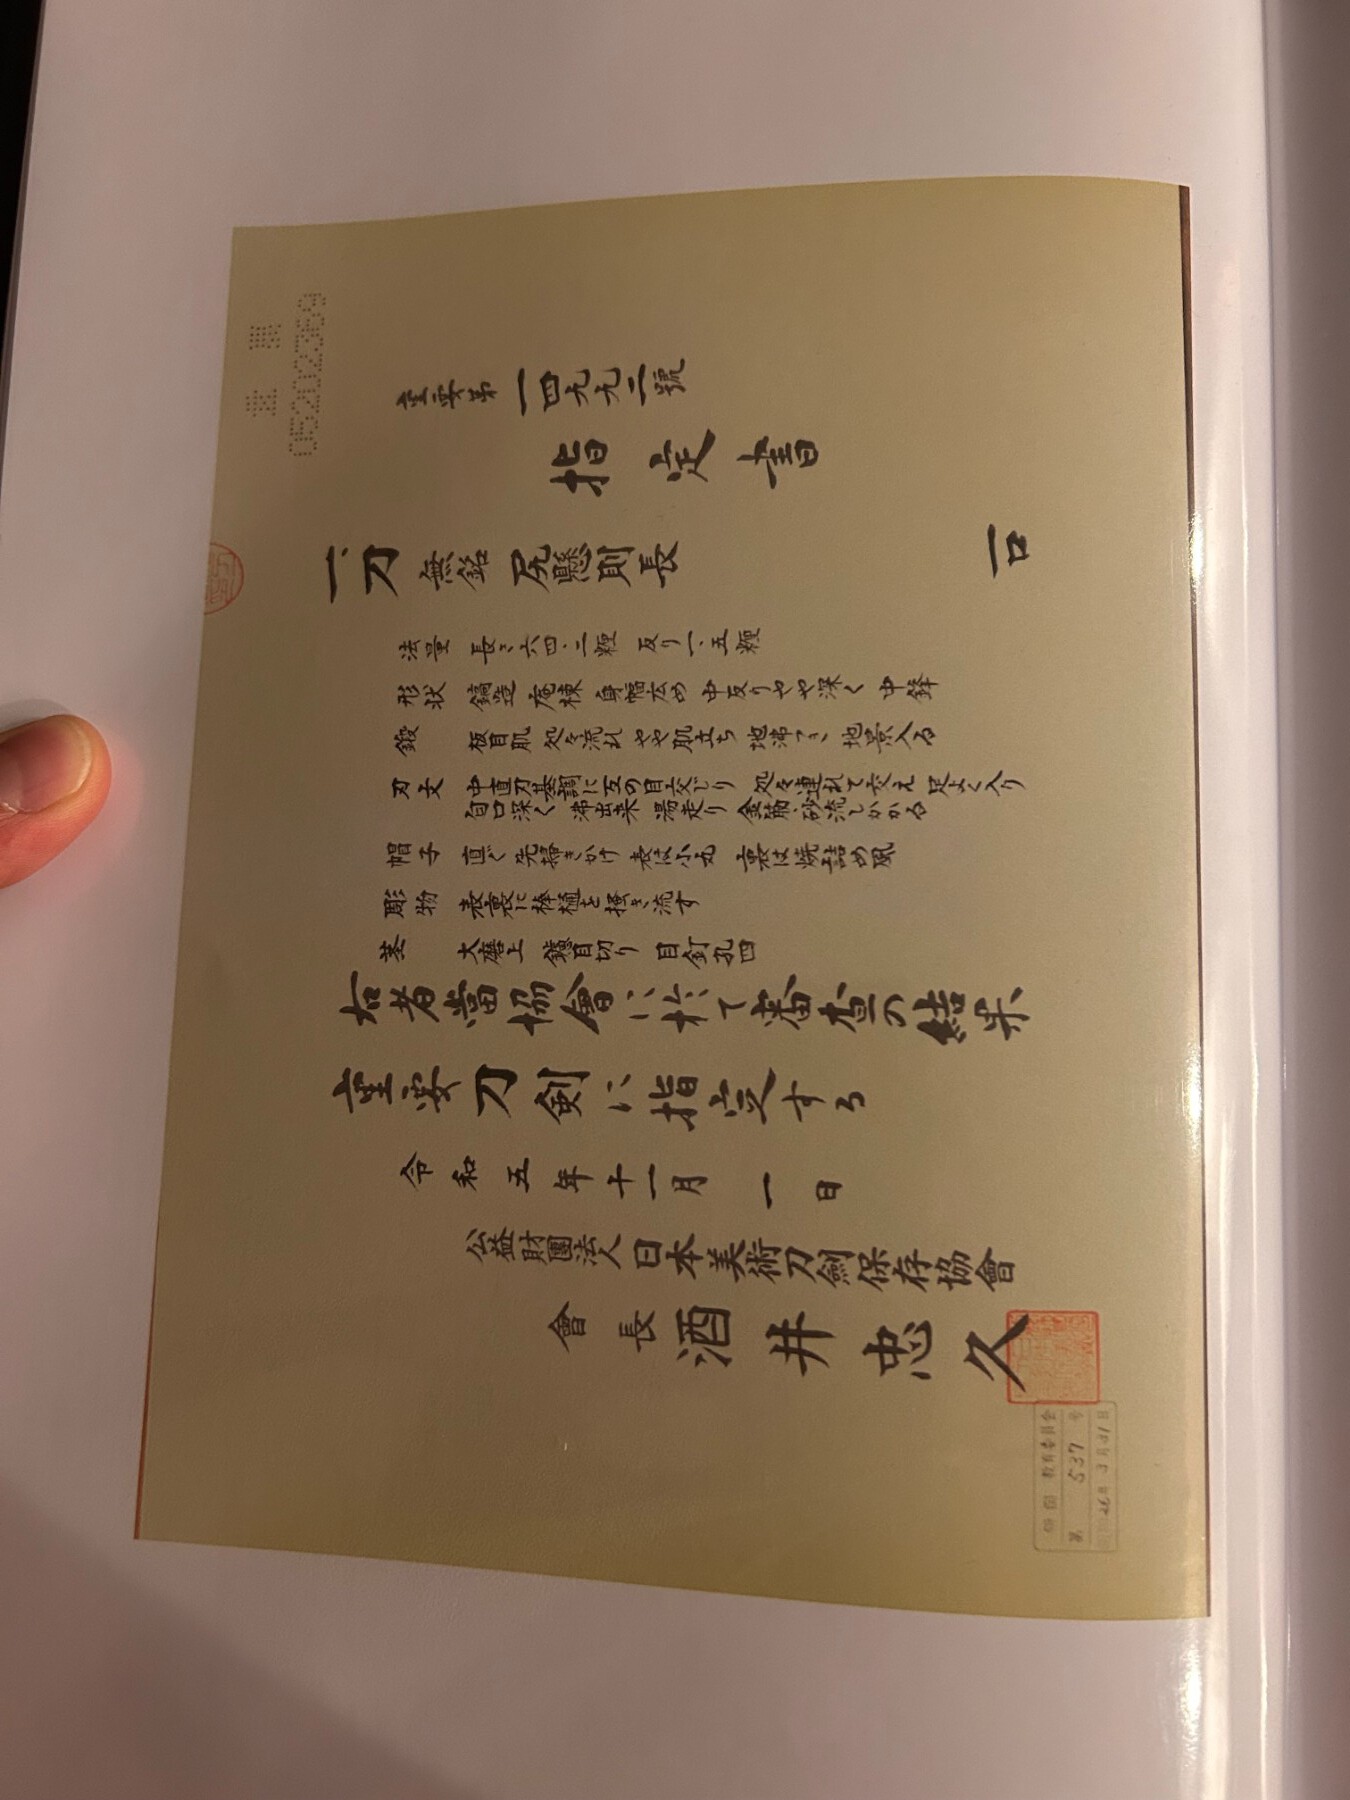 重要第一四九九二號
指定書
一、刀 無銘 尻懸則長 一口
法量 長さ六四・二糎 反り一・五糎
形状 鎬造 庵棟 身幅広め 中反りやや深く 中鋒
鍛 板目肌 処々流れ やや肌立ち 地沸つき 地景入る
刃文 中直刃基調に互の目交じり 処々連れて交え 足よく入り
匂口深く 沸出来 湯走り 金筋、砂流しかかる
帽子 直ぐ 先掃きかけ 表は小丸 裏は焼詰め風
彫物 表裏に棒樋を掻き流す
茎 大磨上 鑢目切り 目釘孔四
右者當協會ニ於て審査の結果
重要刀剣ニ指定する
令和五年十一月 一日
公益財團法人日本美術刀劍保存協會
會長 酒井忠久
教育委員会
第 537 号
26年3月31日
05202369